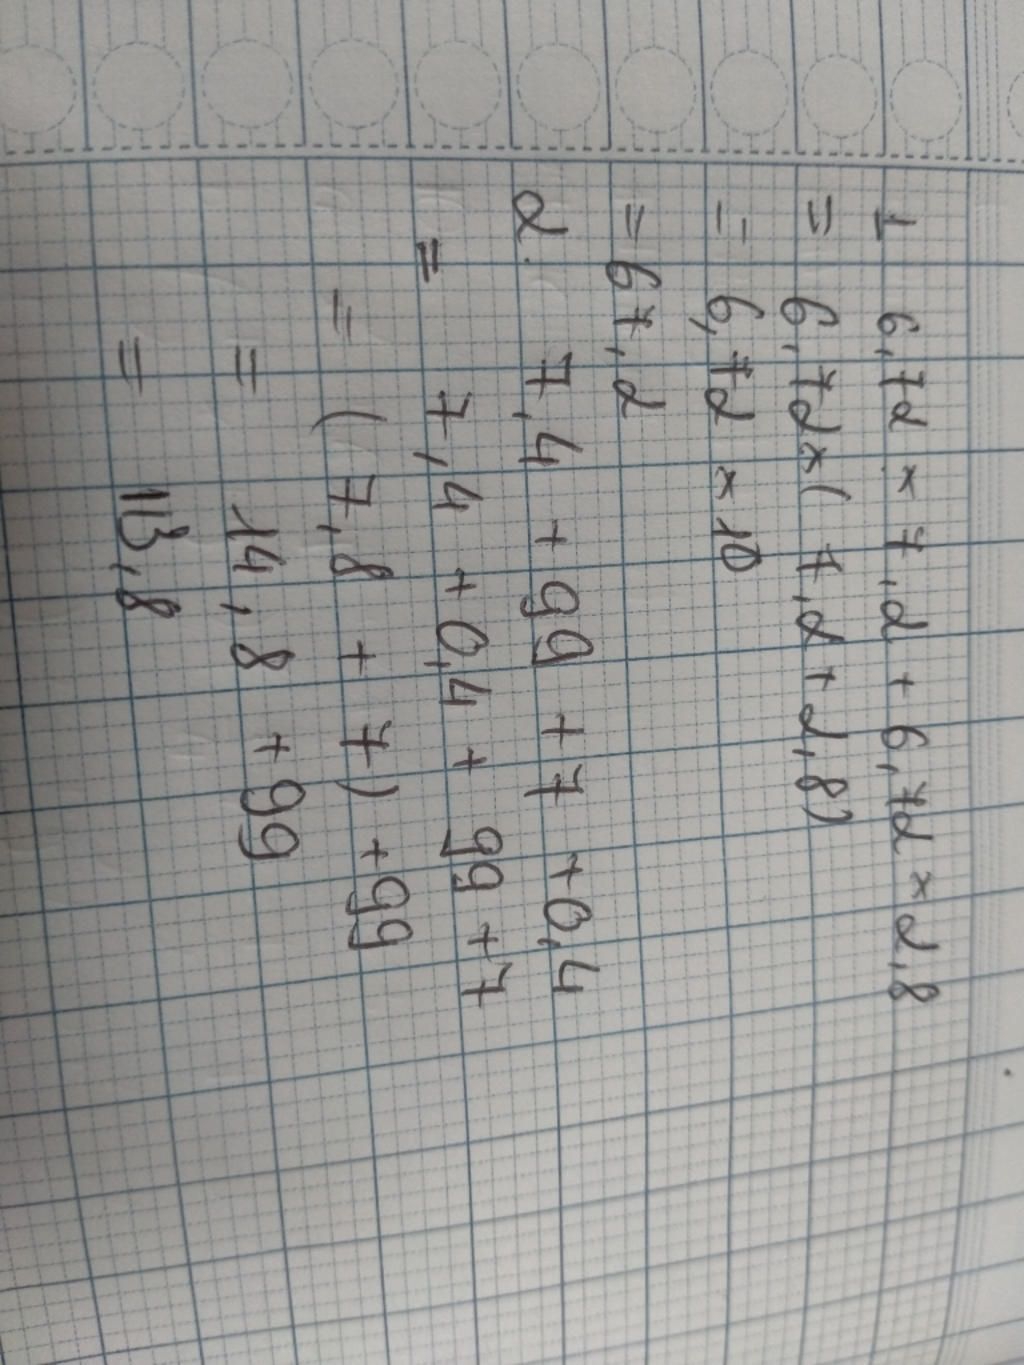 1 6,72 × 7,2 + 6,72 × 2,8
= 6,72 × ( 7,2 + 2,8)
= 6,72 × 10
= 67,2
2. 7,4 + 99 + 7 + 0,4
= 7,4 + 0,4 + 99 + 7
= ( 7,8 + 7) + 99
= 14,8 + 99
= 113,8